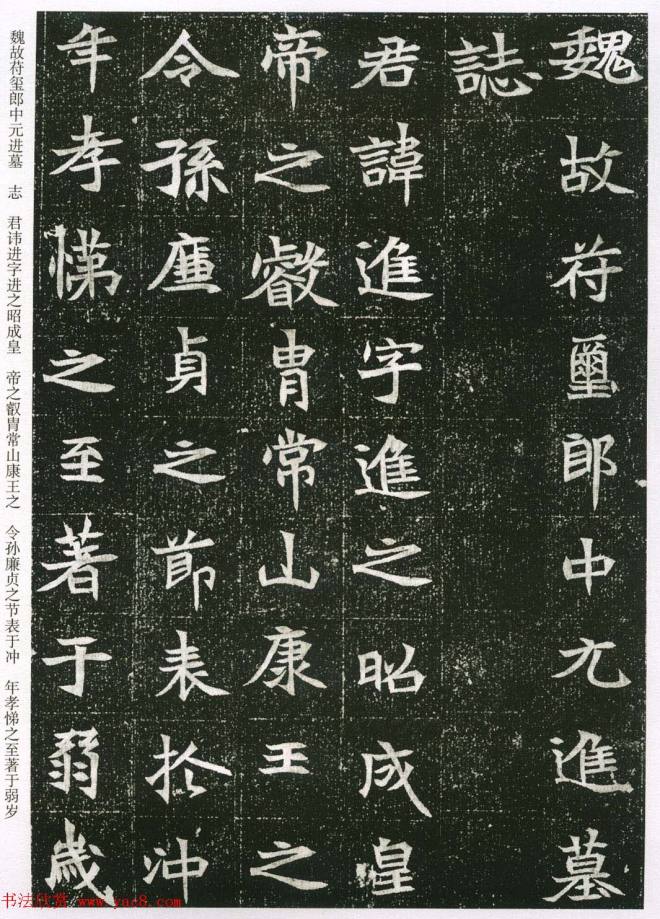 魏故苻璽郎中元進墓
誌
君諱進字進之昭成皇
帝之叡胄常山康王之
令孫廉貞之節表扵沖
年孝悌之至著于弱歲
魏故苻玺郎中元进墓 志 君讳进字进之昭成皇 帝之叡胄常山康王之 令孙廉贞之节表于冲 年孝悌之至著于弱岁
书法欣赏 www.yac8.com